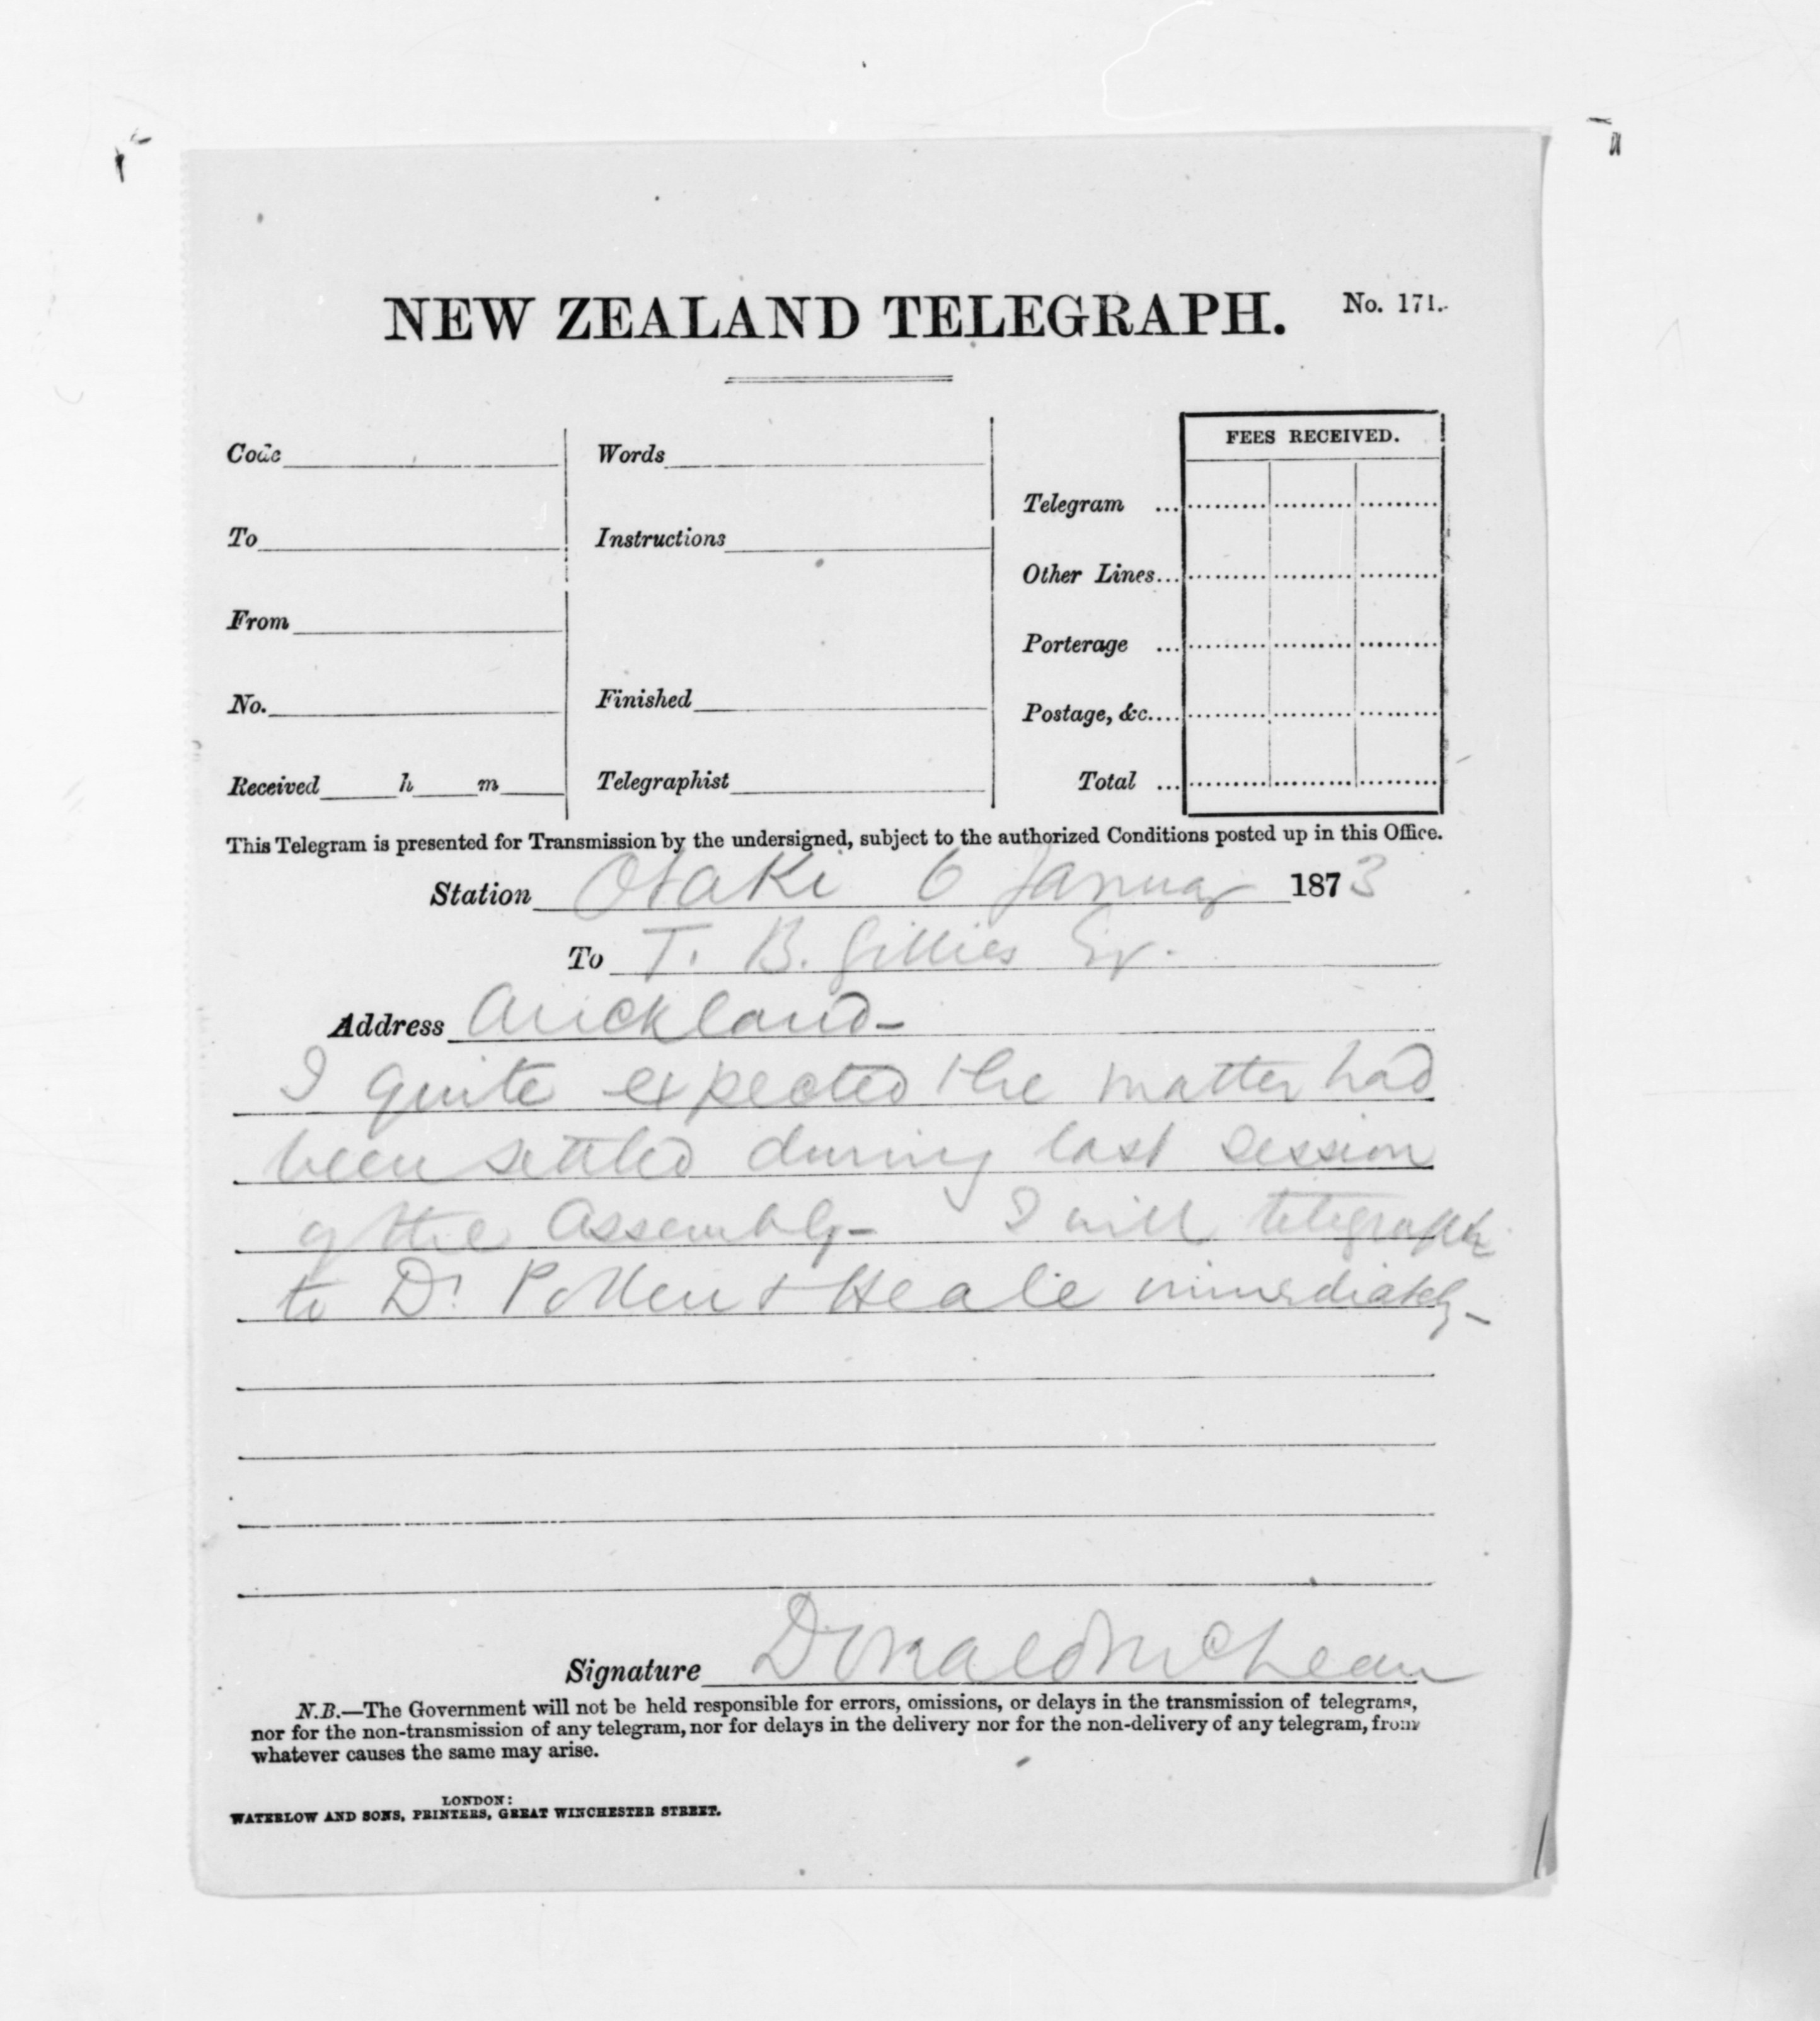 NEW ZEALAND TELEGRAPH. No. 171.
FEES RECEIVED.
Code Words
Telegram ...
To Instructions
Other Lines...
From
Porterage ...
No. Finished
Postage, &c....
Received h m Telegraphist Total ...
This Telegram is presented for Transmission by the undersigned, subject to the authorized Conditions posted up in this Office.
Station Otaki 6 January 1873
To T. B. Gillies Esq.
Address Auckland-
I quite expected the matter had
been settled during last session
of the Assembly- I will telegraph
to Dr. Pollen & Heale immediately-
Signature Donald McLean
N.B.—The Government will not be held responsible for errors, omissions, or delays in the transmission of telegrams,
nor for the non-transmission of any telegram, nor for delays in the delivery nor for the non-delivery of any telegram, from
whatever causes the same may arise.
LONDON:
WATERLOW AND SONS, PRINTERS, GREAT WINCHESTER STREET.